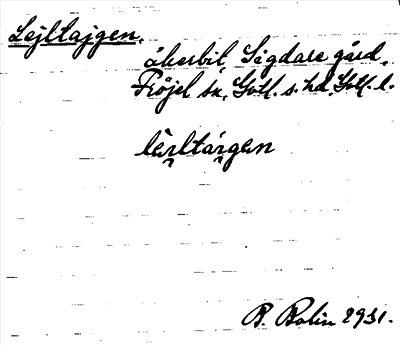 Lejltajgen.
åkerbit, Sigdare gård,
Fröjel sn, Gotl. s. hd, Gotl. l.
P. Bolin 1931.